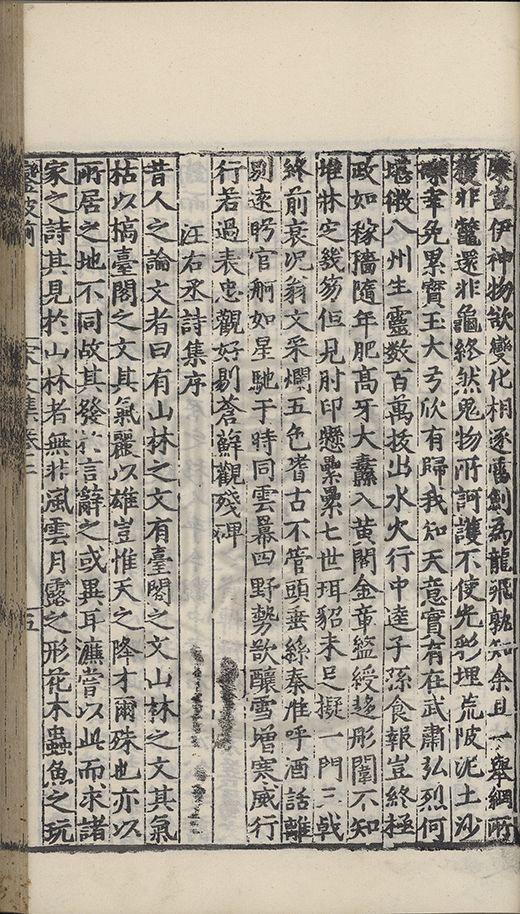 廉豈伊神物欲變化相逐雷劍為龍飛孰知余且一舉網兩
獲非鼇還非龜終然鬼物所訶護不使光彩埋荒陂泥土沙
礫幸免累寶玉大弓欣有歸我知天意實有在武肅弘烈何
嵬巍八州生靈數百萬拔出水火行中逵子孫食報豈終極
政如稼穡隨年肥高牙大纛入黄閣金章盭綬趍彤闈不知
堆牀定㡬笏但見肘印懸纍纍七世珥貂未足擬一門三戟
終前衰況翁文采爛五色耆古不管頭垂絲秦淮呼酒話離
别遠眄官舸如星馳于時同雲羃四野勢欲釀雪増寒威行
行若過表忠觀好剔蒼蘚觀殘碑
汪右丞詩集序
昔人之論文者曰有山林之文有臺閣之文山林之文其氣
枯以槁臺閣之文其氣麗以雄豈惟天之降才爾殊也亦以
所居之地不同故其發於言辭之或異耳濂嘗以此而求諸
家之詩其見於山林者無非風雲月露之形花木蟲魚之玩
五